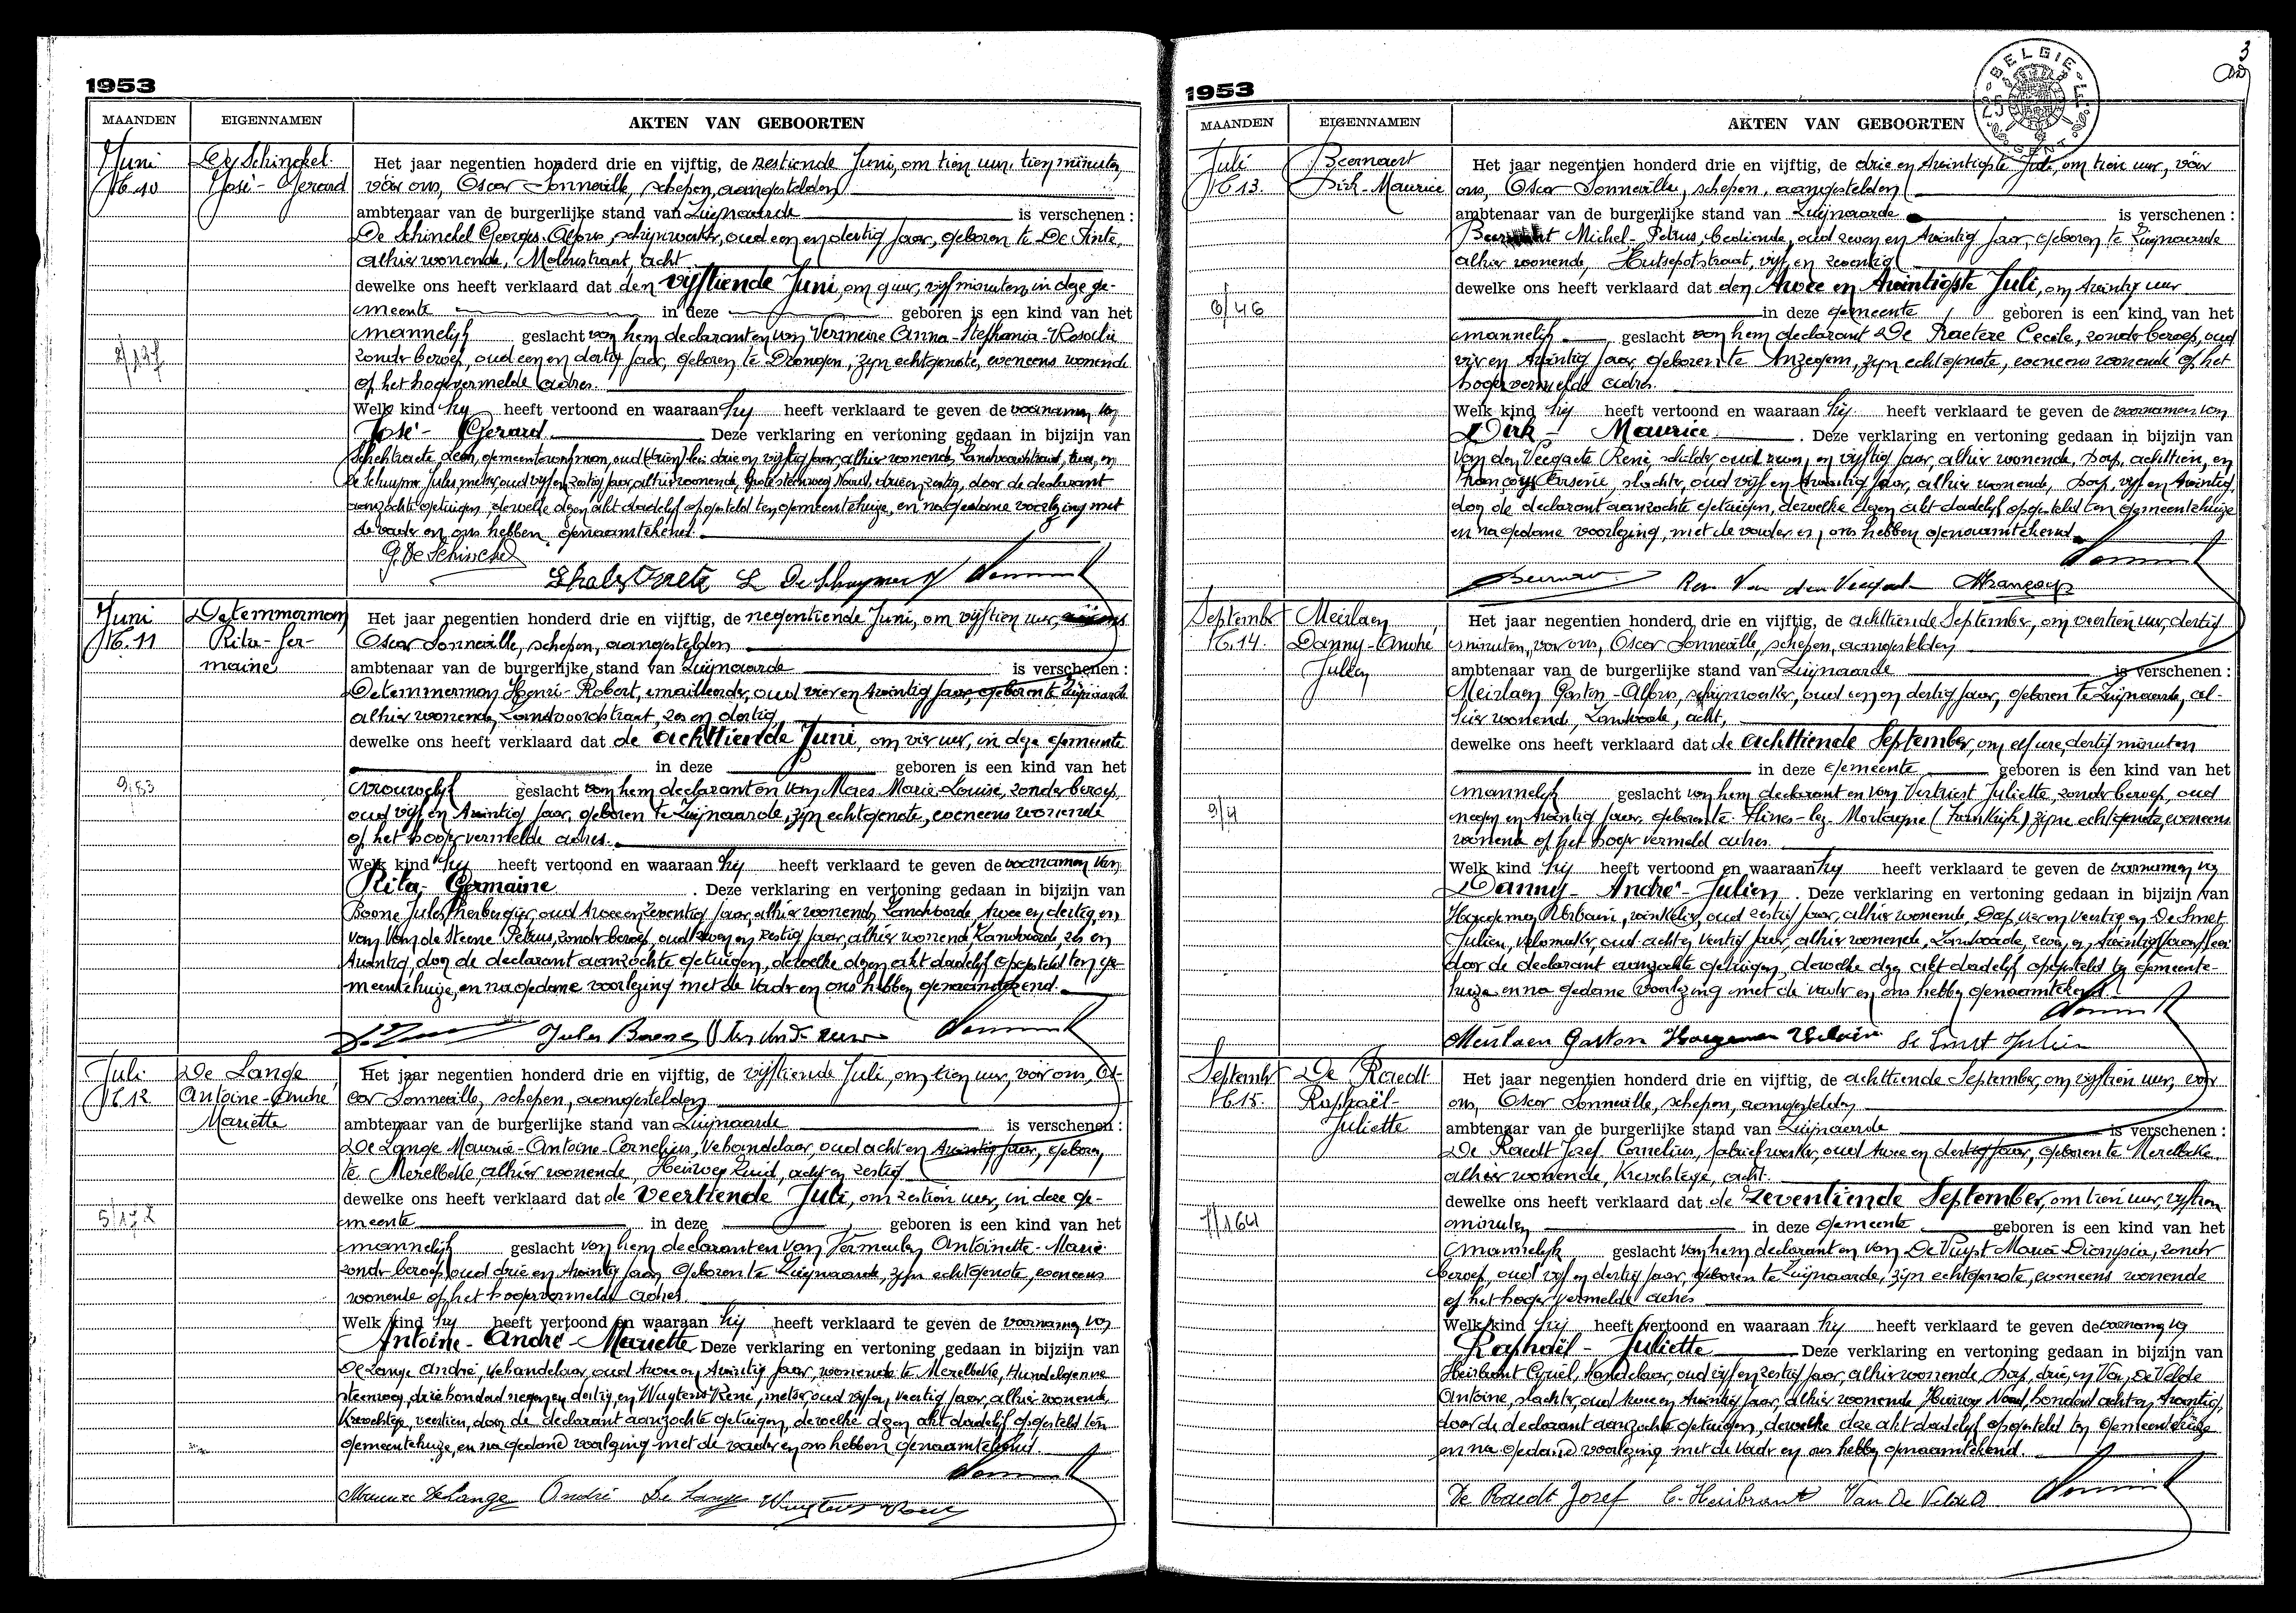 1953
MAANDEN EIGENNAMEN AKTEN VAN GEBOORTEN
Juni De Schinckel Het jaar negentien honderd drie en vijftig, de zestiende Juni, om tien uur, tien minuten
N° 10 José-Gerard vóór ons, Oscar Sonneville, schepen, aangestelden
ambtenaar van de burgerlijke stand van Zwijnaarde is verschenen :
De Schinckel Georges-Alfons, schrijnwerker, oud een en dertig jaar, geboren te De Pinte,
alhier wonende, Molenstraat, acht
dewelke ons heeft verklaard dat den vijftiende Juni, om 9 uur, vijf minuten, in deze ge-
meente in deze geboren is een kind van het
mannelijk geslacht van hem declarant en van Vermeire Anna-Stephania-Rosalie
zonder beroep, oud een en dertig jaar, geboren te Drongen, zijn echtgenote, eveneens wonende
op het hogervermelde adres.
Welk kind hij heeft vertoond en waaraan hij heeft verklaard te geven de voornamen van
José - Gerard Deze verklaring en vertoning gedaan in bijzijn van
oud drie en vijftig jaar, alhier wonende, Landvoordstraat, twee, en
De Schuymer Jules, metser, oud vijf en zestig jaar, alhier wonende, door de declarant
aanzochte getuigen, dewelke dezen akt dadelijk opgesteld ten gemeentehuize, en na gedane voorlezing met
de vader en ons hebben genaamtekend.
G. De Schinckel
Juni Detemmerman Het jaar negentien honderd drie en vijftig, de negentiende Juni, om vijftien uur,
N° 11 Rita-Ger- Oscar Sonneville, schepen, aangestelden
maine ambtenaar van de burgerlijke stand van Zwijnaarde is verschenen :
Detemmerman Henri-Robert, emailleerder, oud vier en twintig jaar, geboren te Zwijnaarde
alhier wonende, Landvoordstraat, zes en dertig
dewelke ons heeft verklaard dat de achttiende Juni, om vier uur, in deze gemeente
in deze geboren is een kind van het
9/83 vrouwelijk geslacht van hem declarant en van Maes Marie-Louise, zonder beroep,
oud vijf en twintig jaar, geboren te Zwijnaarde, zijn echtgenote, eveneens wonende
op het hoger vermelde adres.
Welk kind hij heeft vertoond en waaraan hij heeft verklaard te geven de voornamen van
Rita - Germaine . Deze verklaring en vertoning gedaan in bijzijn van
Boone Jules, herbergier, oud twee en zeventig jaar, alhier wonende, Landvoorde, twee en dertig, en
van Van de Steene Petrus, zonder beroep, oud zeven en zestig jaar, alhier wonend, Landvoorde, zes en
twintig, door de declarant aanzochte getuigen, dewelke dezen akt dadelijk opgesteld ten ge-
meentehuize, en na gedane voorlezing met de vader en ons hebben genaamtekend.
Jules Boone
Juli De Lange Het jaar negentien honderd drie en vijftig, de vijftiende Juli, om tien uur, vóór ons, Os-
N° 12 Antoine-André car Sonneville, schepen, aangestelden
Mariette ambtenaar van de burgerlijke stand van Zwijnaarde is verschenen :
De Lange Maurice-Antoine-Cornelius, vehandelaar, oud acht en twintig jaar, geboren
te Merelbeke, alhier wonende, Heirweg Zuid, acht en zestig
dewelke ons heeft verklaard dat de veertiende Juli, om zestien uur, in deze ge-
meente in deze geboren is een kind van het
mannelijk geslacht van hem declarant en van Vermeulen Antoinette-Marie
zonder beroep, oud drie en twintig jaar, geboren te Zwijnaarde, zijn echtgenote, eveneens
wonende op het hogervermelde adres.
Welk kind hij heeft vertoond en waaraan hij heeft verklaard te geven de voornamen van
Antoine - André - Mariette Deze verklaring en vertoning gedaan in bijzijn van
De Lange André, vehandelaar, oud twee en twintig jaar, wonende te Merelbeke, Hundelgemse
steenweg, driehonderd negen en dertig, en Wuytens René, metser, oud vijf en veertig jaar, alhier wonende,
Krevchtege, veertien, door de declarant aanzochte getuigen, dewelke dezen akt dadelijk opgesteld ten
gemeentehuize, en na gedane voorlezing met de vader en ons hebben genaamtekend.
Maurice De Lange André De Lange Wuytens René
1953
BELGIE GENT
3
MAANDEN EIGENNAMEN AKTEN VAN GEBOORTEN
Juli Beernaert Het jaar negentien honderd drie en vijftig, de drie en twintigste Juli, om tien uur, vóór
N° 13. Dirk-Maurice ons, Oscar Sonneville, schepen, aangestelden
ambtenaar van de burgerlijke stand van Zwijnaarde is verschenen :
Michel-Petrus, bediende, oud zeven en twintig jaar, geboren te Zwijnaarde
alhier wonende, Hutsepotstraat, vijf en zeventig
dewelke ons heeft verklaard dat den twee en twintigste Juli, om twintig uur
6/46 in deze gemeente geboren is een kind van het
mannelijk geslacht van hem declarant De Praetere Cecile, zonder beroep, oud
vier en twintig jaar, geboren te Anzegem, zijn echtgenote, eveneens wonende op het
hogervermelde adres.
Welk kind hij heeft vertoond en waaraan hij heeft verklaard te geven de voornamen van
Dirk - Maurice . Deze verklaring en vertoning gedaan in bijzijn van
Van den Veegaete René, schilder, oud zeven en vijftig jaar, alhier wonende, Dorp, achttien, en
François Arsène, slachter, oud vijf en twintig jaar, alhier wonende, Dorp, vijf en twintig,
door de declarant aanzochte getuigen, dewelke dezen akt dadelijk opgesteld ten gemeentehuize
en na gedane voorlezing, met de vader en ons hebben genaamtekend.
September Meirlaen Het jaar negentien honderd drie en vijftig, de achttiende September, om veertien uur, dertig
N° 14. Danny-André minuten, voor ons, Oscar Sonneville, schepen, aangestelden
Julien ambtenaar van de burgerlijke stand van Zwijnaarde is verschenen :
Meirlaen Gaston-Alfons, schrijnwerker, oud een en dertig jaar, geboren te Zwijnaarde, al-
hier wonend, Landvoorde, acht,
dewelke ons heeft verklaard dat de achttiende September, om elf ure, dertig minuten
in deze gemeente geboren is een kind van het
9/4 mannelijk geslacht van hem declarant en van Vertriest Juliette, zonder beroep, oud
negen en twintig jaar, geboren te Flines-lez-Mortagne (Frankrijk) zijne echtgenote, eveneens
wonend op het hoger vermeld adres.
Welk kind hij heeft vertoond en waaraan hij heeft verklaard te geven de voornamen van
Danny - André - Julien . Deze verklaring en vertoning gedaan in bijzijn van
Haegeman Urbain, winkelier, oud zestig jaar, alhier wonende, Dorp, vier en veertig, en De Smet
Julien, velomaker, oud acht en veertig jaar, alhier wonende, Landvoorde, zeven en twintig
door de declarant aanzochte getuigen, dewelke dezen akt dadelijk opgesteld ten gemeente-
huize en na gedane voorlezing met de vader en ons hebben genaamtekend.
Meirlaen Gaston Haegeman Urbain De Smet Julien
September De Raedt Het jaar negentien honderd drie en vijftig, de achttiende September, om vijftien uur, voor
N° 15. Raphaël- ons, Oscar Sonneville, schepen, aangestelden
Juliette ambtenaar van de burgerlijke stand van Zwijnaarde is verschenen :
De Raedt Jozef Cornelius, fabriekwerker, oud twee en dertig jaar, geboren te Merelbeke
alhier wonende, Krevchtege, acht.
dewelke ons heeft verklaard dat de zeventiende September, om tien uur, vijftien
7/164 minuten in deze gemeente geboren is een kind van het
mannelijk geslacht van hem declarant en van De Vuyst Maria Dionysia, zonder
beroep, oud vijf en dertig jaar, geboren te Zwijnaarde, zijn echtgenote, eveneens wonende
op het hoger vermelde adres
Welk kind hij heeft vertoond en waaraan hij heeft verklaard te geven de voornamen van
Raphaël - Juliette Deze verklaring en vertoning gedaan in bijzijn van
Heirbrant Cyriel, handelaar, oud vijf en zestig jaar, alhier wonende, Dorp, drie, en Van De Velde
Antoine, slachter, oud twee en twintig jaar, alhier wonende Heirweg Noord, honderd acht en twintig,
door de declarant aanzochte getuigen, dewelke deze akt dadelijk opgesteld ten gemeentehuize
en na gedane voorlezing met de vader en ons hebben genaamtekend.
De Raedt Jozef C. Heirbrant Van De Velde A